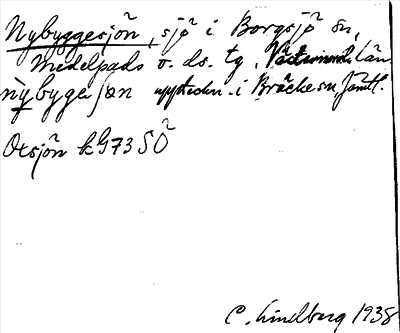 Nybyggesjön, sjö i Borgsjö sn,
Medelpads v. ds. tg, Västernorrl. län
nỳbygesjøn upptecknr. i Bräcke sn, Jämtl.
Otsjön bl 973 SÖ
C. Lindberg 1938